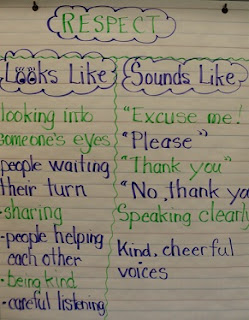 RESPECT
Looks Like
looking into
someone's eyes
people waiting
their turn
-sharing
-people helping
each other
-being kind
-careful listening
Sounds Like
"Excuse me!
"Please"
"Thank you"
"No, thank you
Speaking clearly
Kind, cheerful
voices